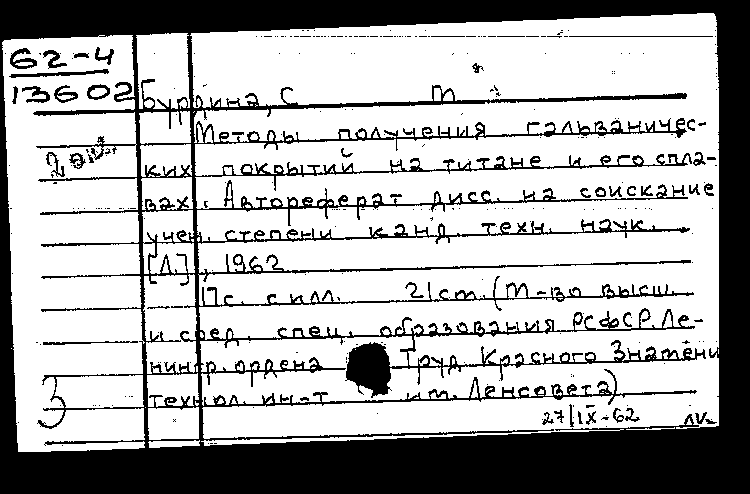 62-4
13602
Бурдина, С т
Методы получения гальваничес-
ких покрытий на титане и его спла-
вах. Автореферат дисс. на соискание
учен. степени канд. техн. наук.
[Л.], 1962
17с. с илл. 21ст. (М-во высш.
и сред. спец. образования РСФСР. Ле-
нингр. ордена Труд Красного Знамени
технол. ин-т им. Ленсовета).
3
27/IX-62